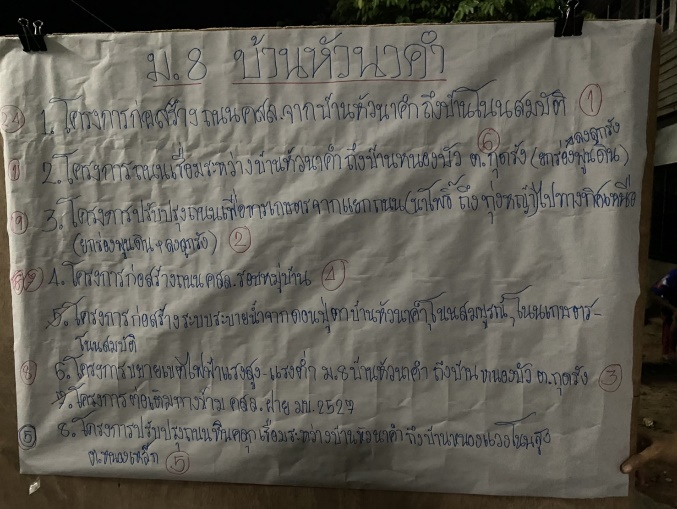 ม.8 บ้านหัวนาคำ
24 1. โครงการก่อสร้าง ถนน คสล. จากบ้านหัวนาคำ ถึงบ้านโนนสมบัติ 1
1 2. โครงการถนนเชื่อมระหว่างบ้านหัวนาคำ ถึงบ้านหนองบัว ต.กุดรัง (ยกร่องพูนดิน) 6
ลงลูกรัง
9 3. โครงการปรับปรุงถนนเพื่อการเกษตรจากแยกถนน ถึง ทุ่งหญ้า)ไปทางทิศเหนือ
(ยกร่องพูนดิน + ลงลูกรัง) 2
4. โครงการก่อสร้างถนน คสล. รอบหมู่บ้าน 4
5. โครงการก่อสร้างระบบระบายน้ำจากดอนปู่ตาบ้านหัวนาคำ, โนนสมบูรณ์, โนนเกษตร-
โนนสมบัติ
8 6. โครงการขยายเขตไฟฟ้าแรงสูง-แรงต่ำ ม.8 บ้านหัวนาคำ ถึงบ้าน หนองบัว ต.กุดรัง 3
7. โครงการต่อเติมทางข้าม คสล. ฝาย มข.2527
5 8. โครงการปรับปรุงถนนหินคลุกเชื่อมระหว่างบ้านหัวนาคำ ถึงบ้านหนองแวงโนนสูง
ต.หนองเหล็ก 5